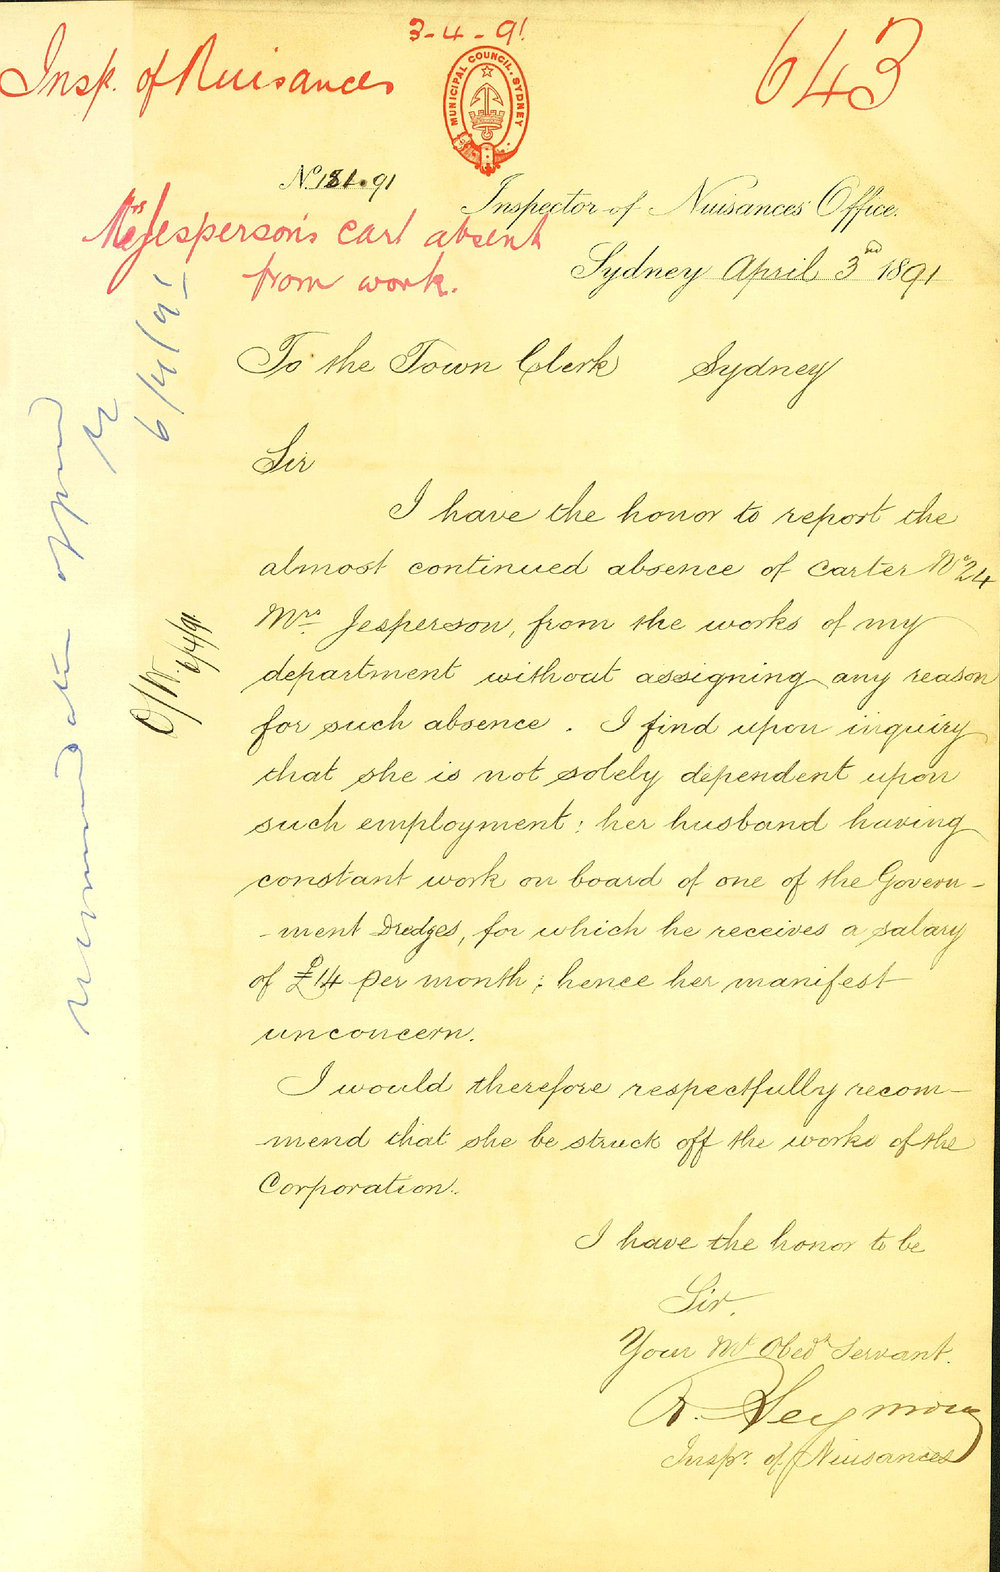 3-4-91
Insp. of Nuisances
643
MUNICIPAL COUNCIL. SYDNEY
No 181.91
Inspector of Nuisances Office.
Mrs Jesperson's cart absent
from work.
Sydney April 3rd 1891
To the Town Clerk Sydney
Sir
I have the honor to report the
almost continued absence of carter No 24
Mrs Jesperson, from the works of my
department without assigning any reason
for such absence. I find upon inquiry
that she is not solely dependent upon
such employment; her husband having
constant work on board of one of the Govern-
-ment Dredges, for which he receives a salary
of £14 per month; hence her manifest
unconcern.
I would therefore respectfully recom-
-mend that she be struck off the works of the
Corporation.
I have the honor to be
Sir,
Your Mt Obedt Servant.
R. Seymour
Inspr. of Nuisances
recommendation approved
6/4/91
6/4/91